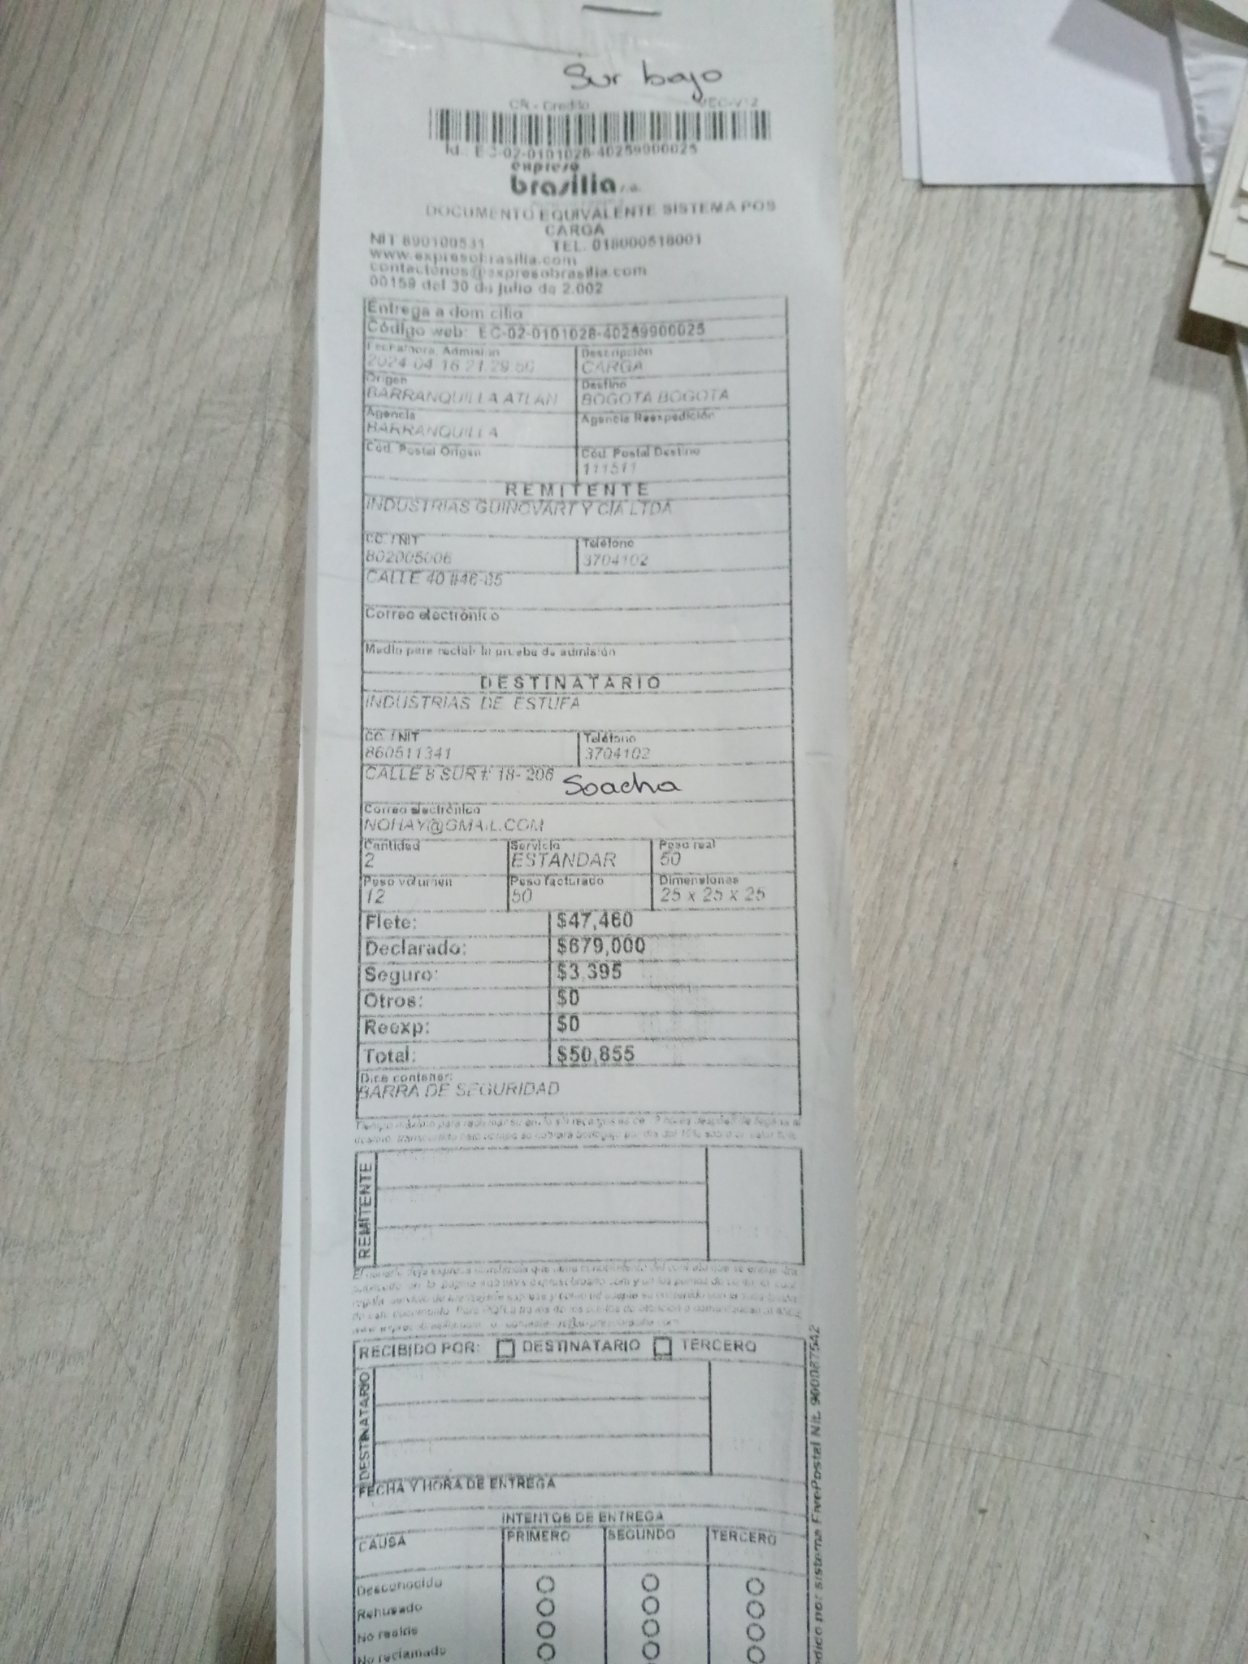 Sur bajo
CR - Credito
Id.: EC-02-0101028-40259900025
expreso
brasilia s.a.
DOCUMENTO EQUIVALENTE SISTEMA POS
CARGA
NIT 890100531 TEL. 018000518001
www.expresobrasilia.com
contactenos@expresobrasilia.com
00159 del 30 de julio de 2.002
Entrega a domicilio
Código web: EC-02-0101028-40259900025
Fecha/hora Admision Descripción
2024-04-16 21:29:50 CARGA
Origen Destino
BARRANQUILLA ATLAN BOGOTA BOGOTA
Agencia Agencia Reexpedición
BARRANQUILLA
Cód. Postal Origen Cód. Postal Destino
111511
REMITENTE
INDUSTRIAS GUINOVART Y CIA LTDA
CC / NIT Teléfono
802005006 3704102
CALLE 40 #46-85
Correo electrónico
Medio para recibir la prueba de admisión
DESTINATARIO
INDUSTRIAS DE ESTUFA
CC / NIT Teléfono
860511341 3704102
CALLE 8 SUR # 18- 206 Soacha
Correo electrónico
NOHAY@GMAIL.COM
Cantidad Servicio Peso real
2 ESTANDAR 50
Peso volumen Peso facturado Dimensiones
12 50 25 x 25 x 25
Flete: $47,460
Declarado: $679,000
Seguro: $3,395
Otros: $0
Reexp: $0
Total: $50,855
Dice contener:
BARRA DE SEGURIDAD
REMITENTE
RECIBIDO POR: DESTINATARIO TERCERO
DESTINATARIO
FECHA Y HORA DE ENTREGA
INTENTOS DE ENTREGA
CAUSA PRIMERO SEGUNDO TERCERO
Desconocido
Rehusado
No reside
No reclamado
sistema FivePostal Nit. 900087542